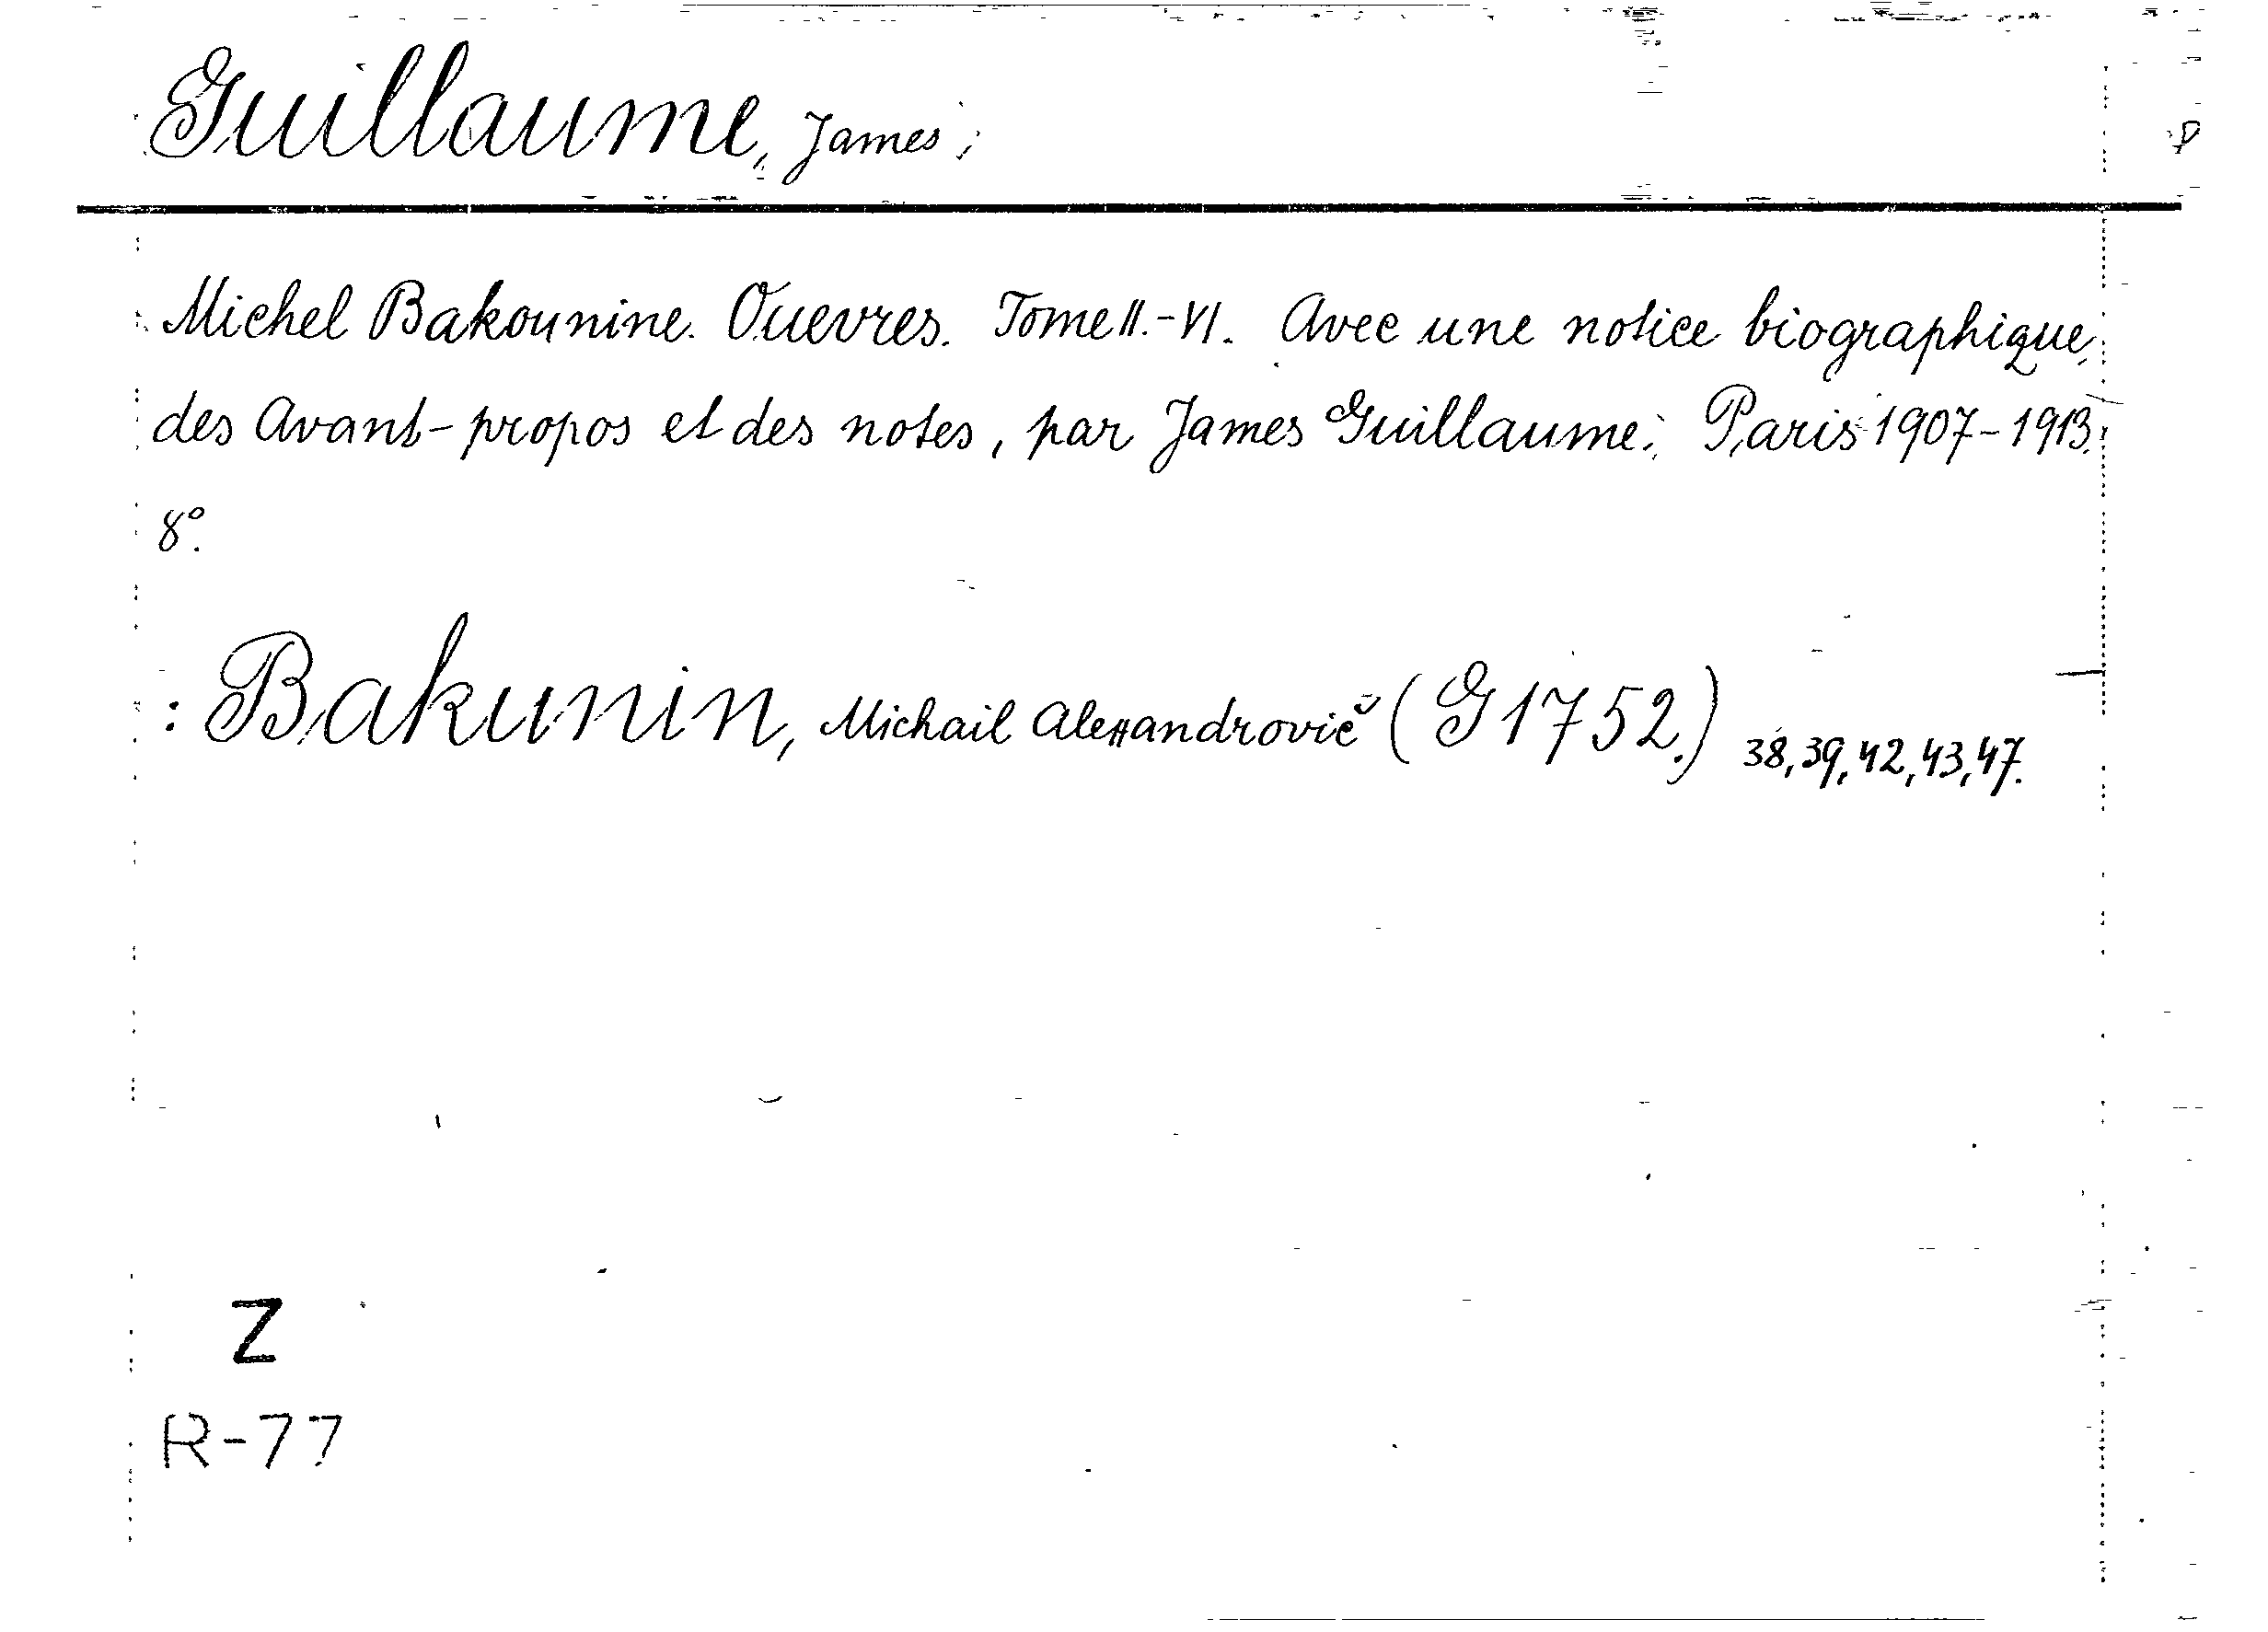 Guillaume, James;
Michel Bakounine. Ouevres. Tome II.-VI. Avec une notice biographique,
des Avant-propos et des notes, par James Guillaume. Paris 1907-1913.
8°.
: Bakunin, Michail Alexandrovič (G 1752.) 38, 39, 42, 43, 47.
Z
R-77